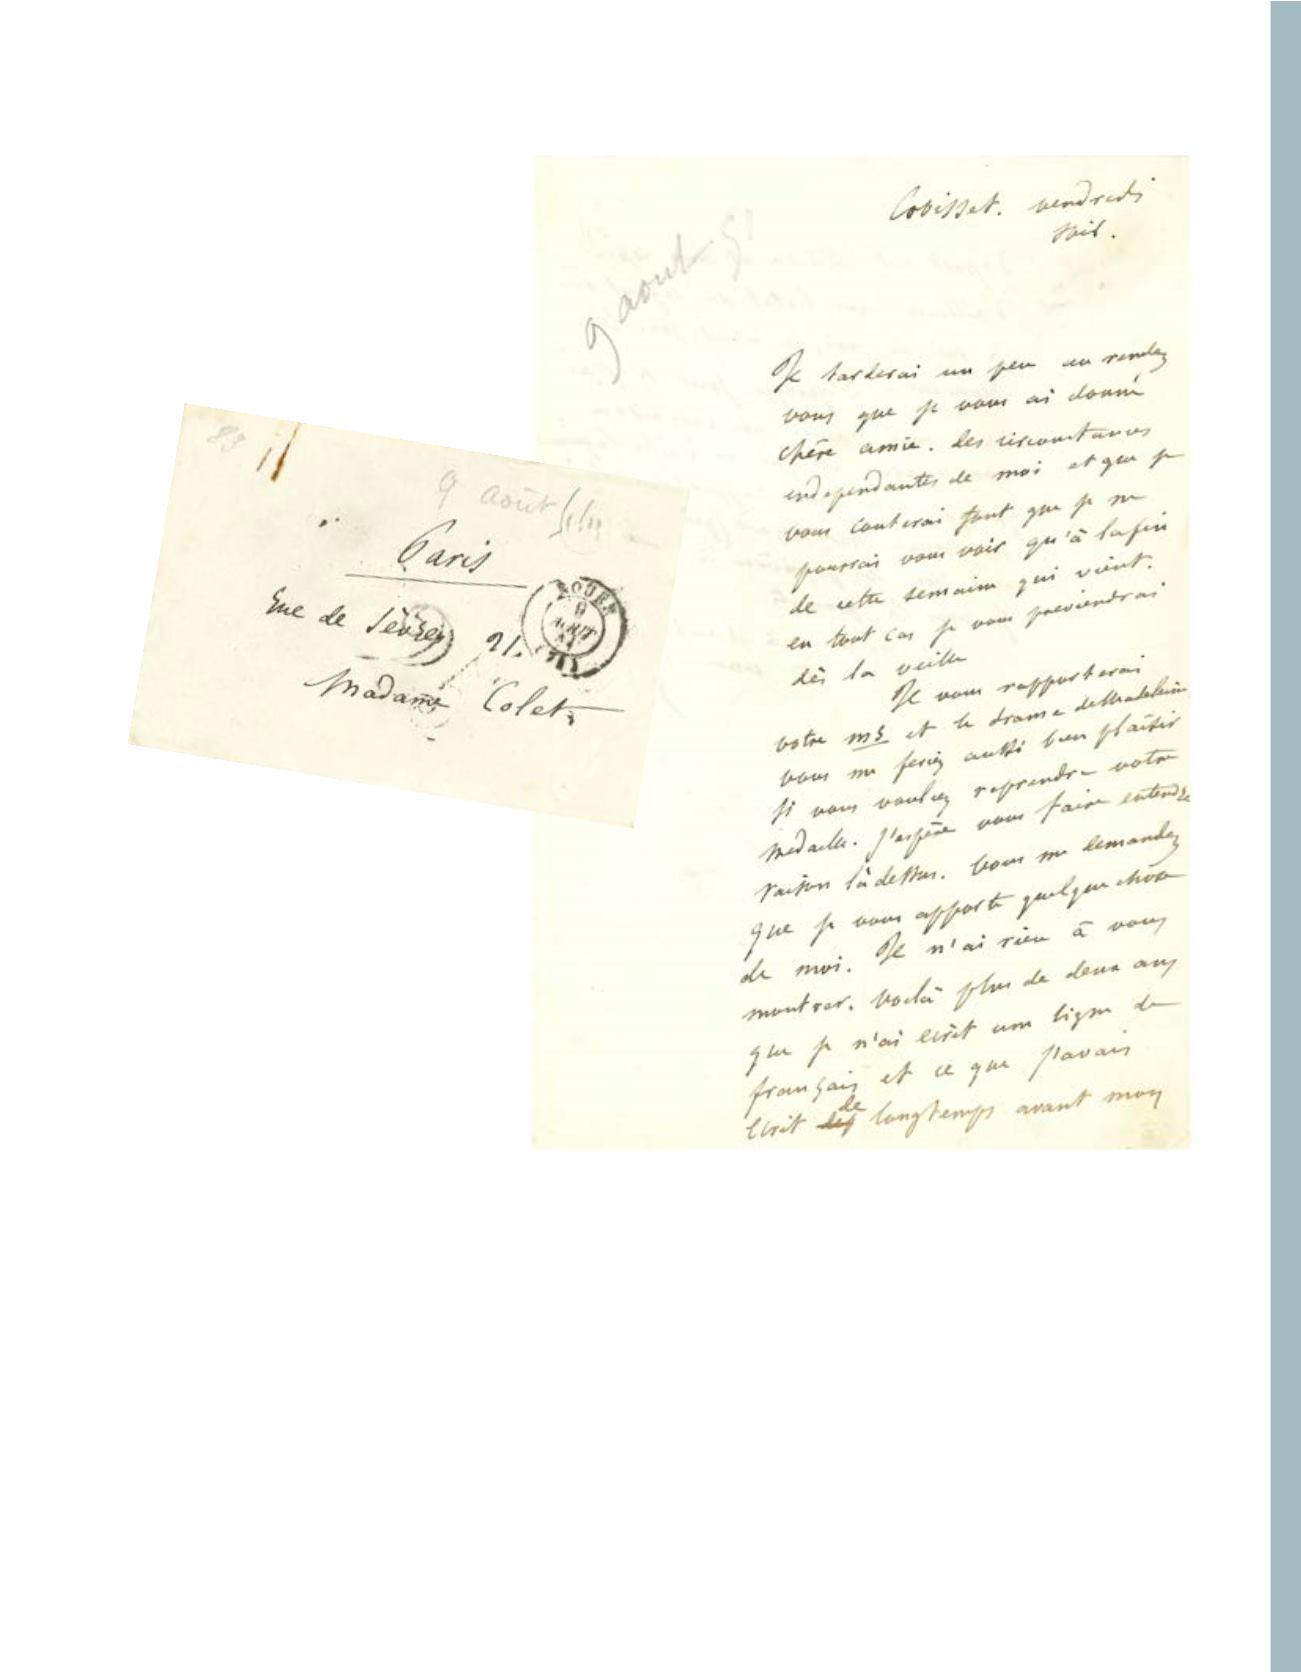 Croisset. vendredi
soir.
9 aout 51
Je tarderai un peu au rendez
vous que je vous ai donné
chère amie. des circonstances
independantes de moi et que je
vous conterai font que je ne
pourrai vous voir qu'à la fin
de cette semaine qui vient.
en tout cas je vous previendrai
dès la veille
Je vous rapporterai
votre ms et le drame de Madeleine
vous me feriez aussi bien plaisir
si vous vouliez reprendre votre
medaille. J'espère vous faire entendre
raison là dessus. Vous me demandez
que je vous apporte quelque chose
de moi. Je n'ai rien à vous
montrer. Voilà plus de deux ans
que je n'ai ecrit une ligne de
français et ce que j'avais
ecrit de longtemps avant mon
83
9 Août 51
Paris
Rue de Sèvres 21.
Madame Colet
ROUEN
9
AOUT
51